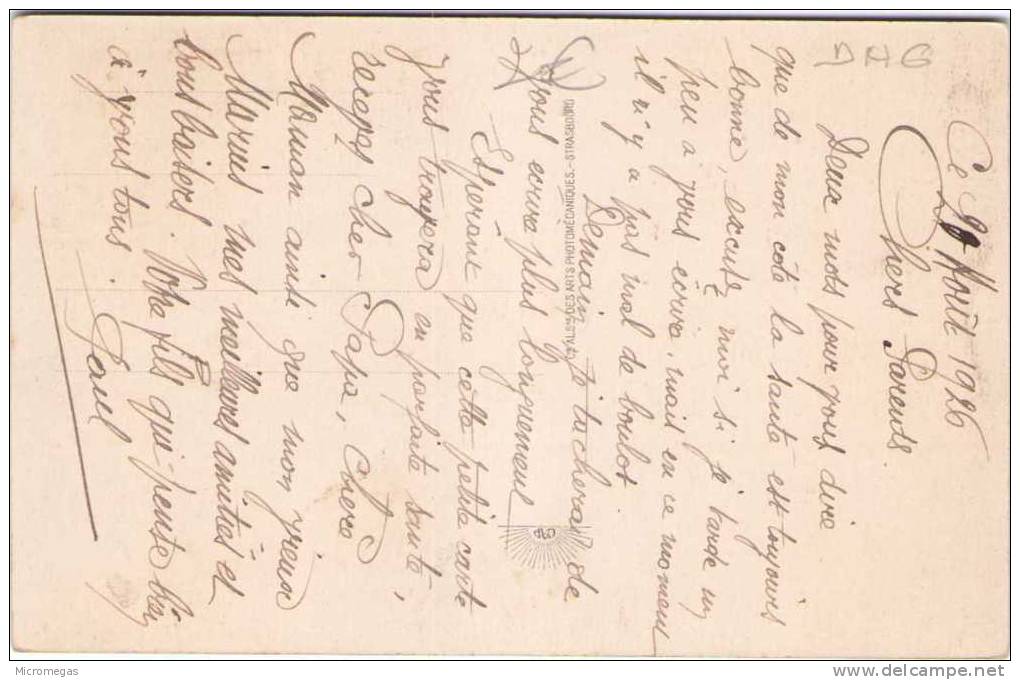 Ce Août 1926
Chers Parents
Deux mots pour vous dire
que de mon coté la santé est toujours
bonne, excusez moi si je tarde un
peu a vous écrire, mais en ce moment
il n'y a pas mal de boulot
Demain je tacherai de
vous ecrire plus longuement
Espérant que cette petite carte
vous trouvera en parfaite santé,
recevez cher Papa, chère
Maman ainsi que mon vieux
Marius mes meilleures amitiés et
bons baisers. Votre fils qui pense bien
à vous tous.
Paul
DES ARTS PHOTOMÉCANIQUES. - STRASBOURG
CAP
Micromegas
delcampe.net